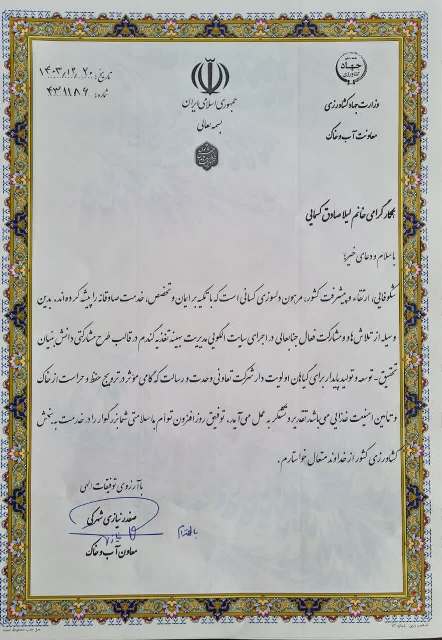 تاریخ: ۱۴۰۳/۱۲/۲۰
شماره: ۴۳۱۱۸۶
جمهوری اسلامی ایران
بسمه تعالی
جهاد
کشاورزی
وزارت جهاد کشاورزی
معاونت آب و خاک
همکار گرامی خانم لیلا صادق کسمایی
با سلام و دعای خیر؛
شکوفایی، ارتقاء و پیشرفت کشور، مرهون دلسوزی کسانی است که با تکیه بر ایمان و تخصص، خدمت صادقانه را پیشه کرده‌اند. بدین
وسیله از تلاش‌ها و مشارکت فعال جنابعالی در اجرای سایت الگویی مدیریت بهینه تغذیه گندم در قالب طرح مشارکتی دانش بنیان
تحقیق - توسعه و تولید پایدار برای گیاهان اولویت دار شرکت تعاونی وحدت و رسالت که گامی موثر در ترویج حفظ و حراست از خاک
و تامین امنیت غذایی می‌باشد تقدیر و تشکر به عمل می‌آید. توفیق روزافزون توأم با سلامتی شما بزرگوار را در خدمت به بخش
کشاورزی کشور از خداوند متعال خواستارم.
با آرزوی توفیقات الهی
صفدر نیازی شهرکی
معاون آب و خاک